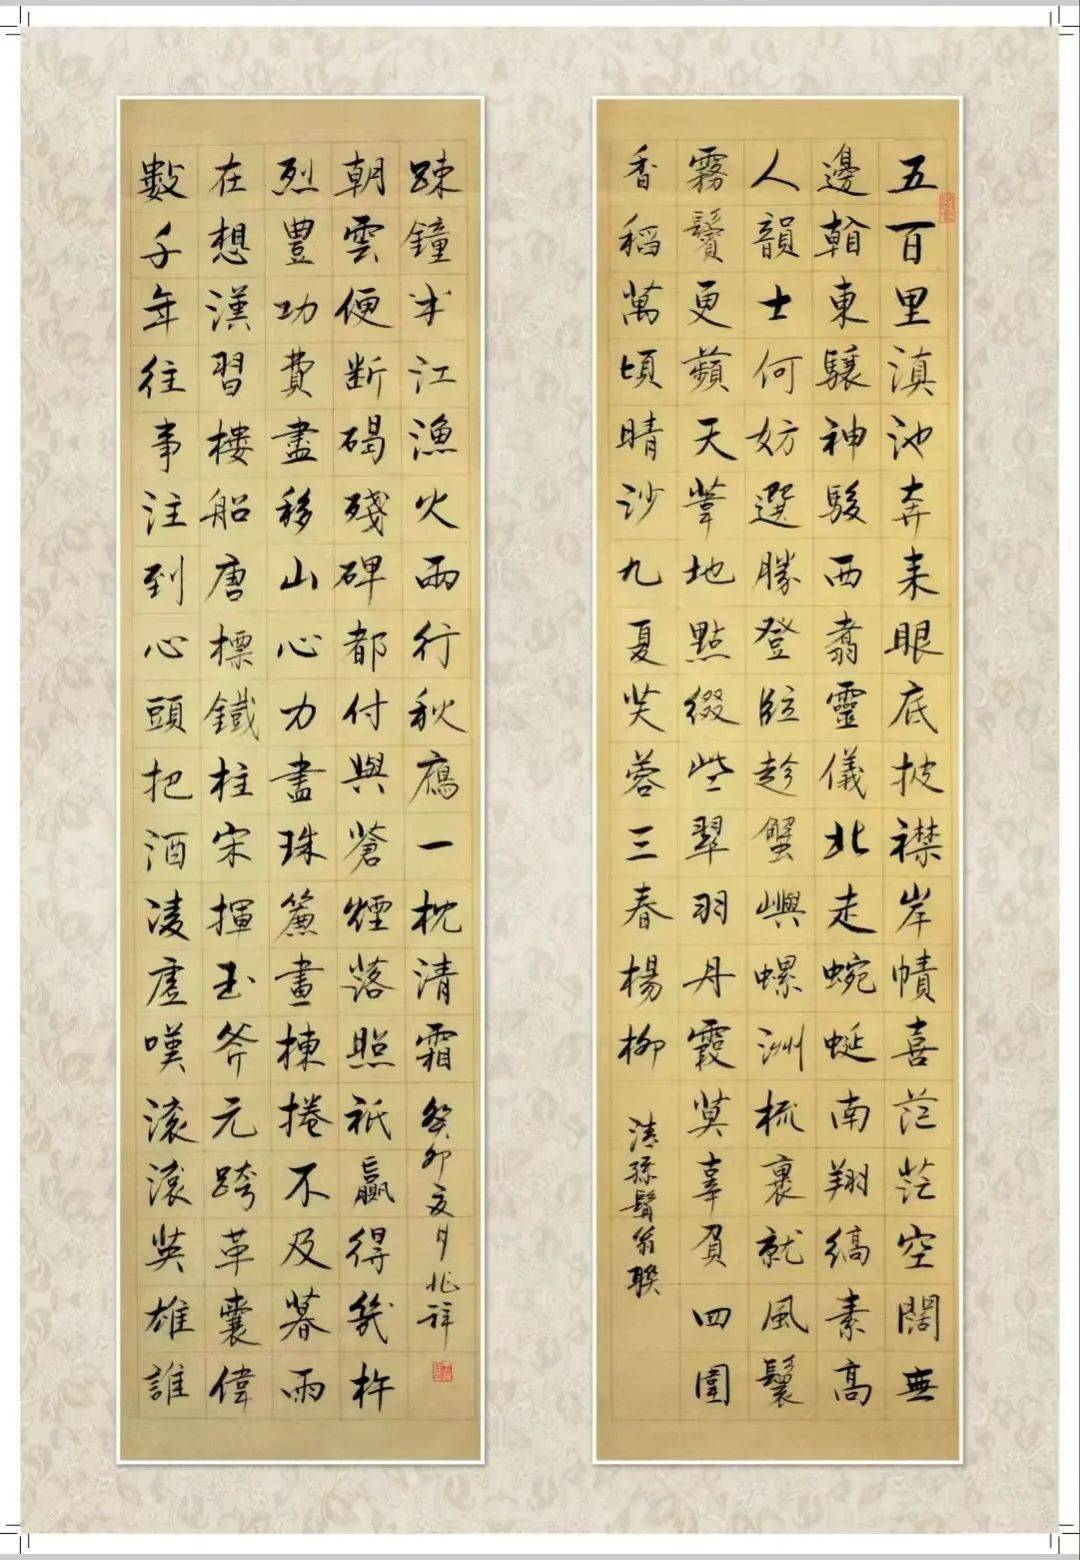 五百里滇池奔來眼底披襟岸幘喜茫茫空闊無
邊看東驤神駿西翥靈儀北走蜿蜒南翔縞素高
人韻士何妨選勝登臨趁蟹嶼螺洲梳裹就風鬟
霧鬢更蘋天葦地點綴些翠羽丹霞莫辜負四圍
香稻萬頃晴沙九夏芙蓉三春楊柳
清孫髯翁聯
數千年往事注到心頭把酒凌虛嘆滾滾英雄誰
在想漢習樓船唐標鐵柱宋揮玉斧元跨革囊偉
烈豐功費盡移山心力盡珠簾畫棟捲不及暮雨
朝雲便斷碣殘碑都付與蒼煙落照祇贏得幾杵
疎鐘半江漁火兩行秋鴈一枕清霜
癸卯夏月兆祥